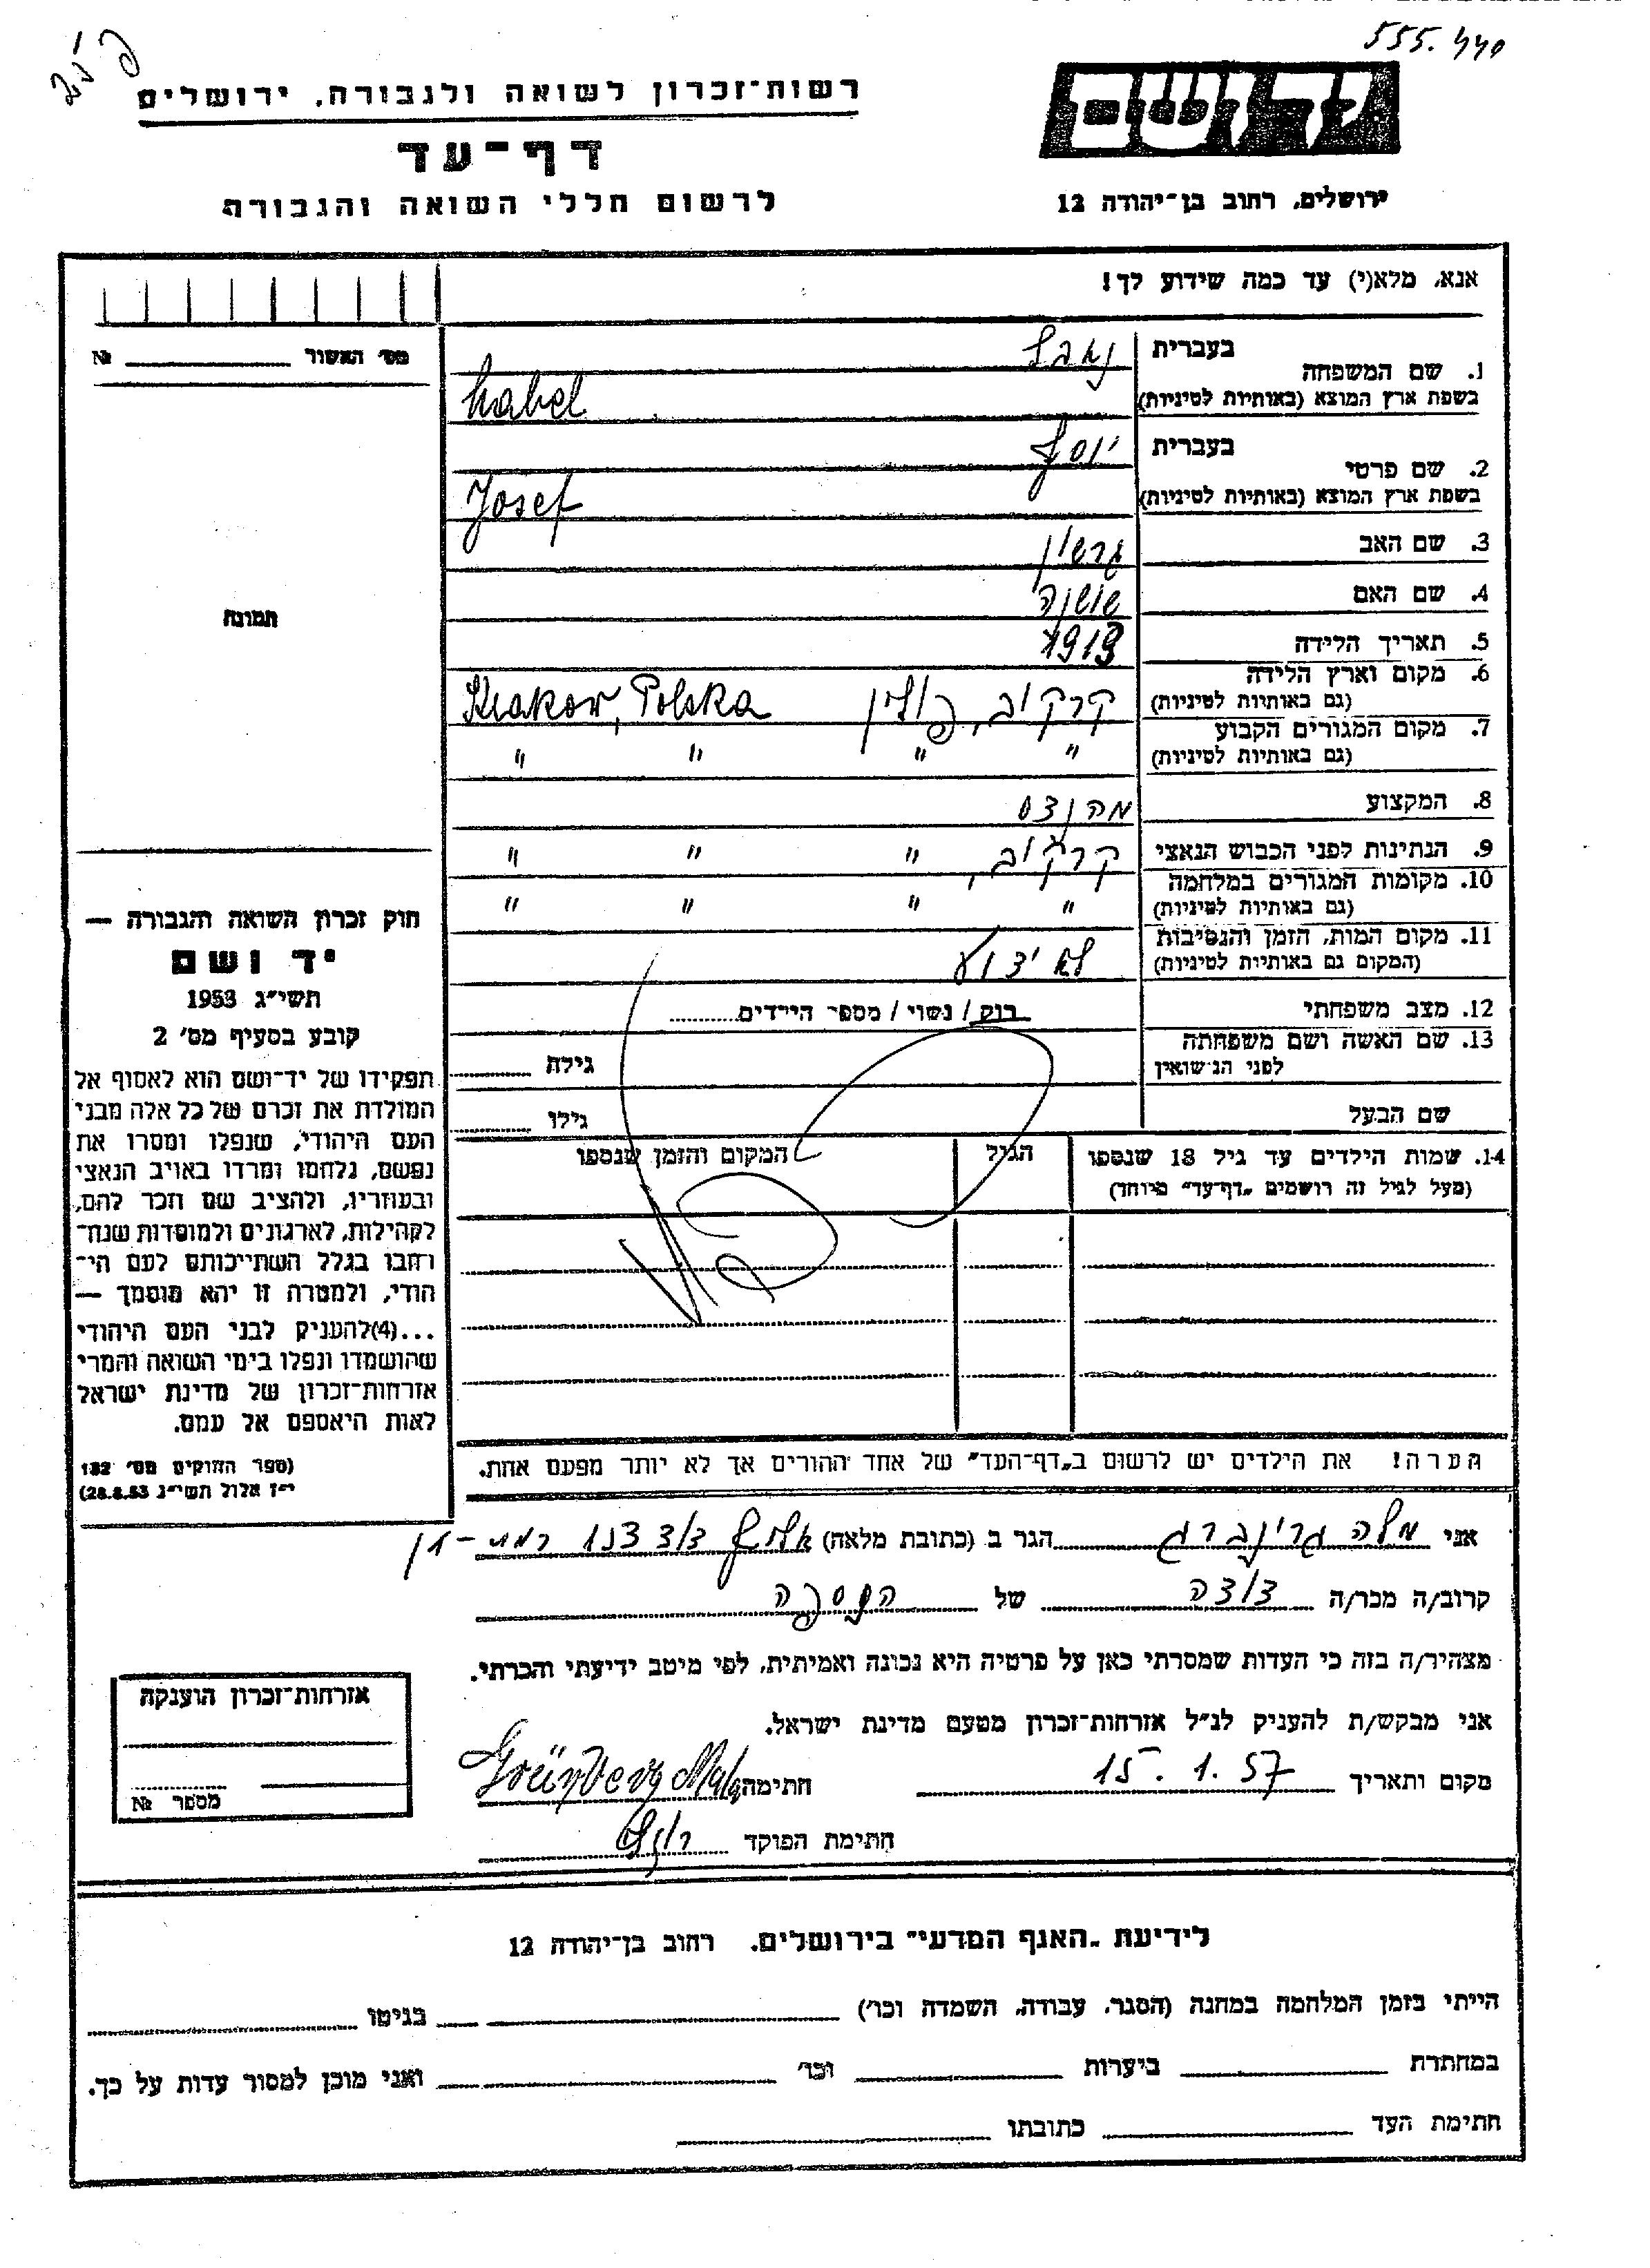 555.440
רשות־זכרון לשואה ולגבורה, ירושלים
יד ושם
דף־עד
לרשום חללי השואה והגבורה
ירושלים, רחוב בן־יהודה 12
אנא, מלא(י) עד כמה שידוע לך!
מס׳ האשור № 
1. שם המשפחה
בעברית
בשפת ארץ המוצא (באותיות לטיניות)
2. שם פרטי
בעברית יוסף
בשפת ארץ המוצא (באותיות לטיניות) Josef
3. שם האב גרשון
4. שם האם שושנה
5. תאריך הלידה
6. מקום וארץ הלידה קרקוב, פולין Krakow, Polska
(גם באותיות לטיניות)
7. מקום המגורים הקבוע " " " "
(גם באותיות לטיניות)
8. המקצוע מהנדס
9. הנתינות לפני הכבוש הנאצי קרקוב, " " "
10. מקומות המגורים במלחמה " " " "
(גם באותיות לטיניות)
11. מקום המות, הזמן והנסיבות לא ידוע
(המקום גם באותיות לטיניות)
12. מצב משפחתי רוק / נשוי / מספר הילדים
13. שם האשה ושם משפחתה
לפני הנישואין
גילה
שם הבעל
גילו
14. שמות הילדים עד גיל 18 שנספו
(מעל לגיל זה רושמים „דף־עד״ מיוחד)
הגיל
המקום והזמן שנספו
תמונה
חוק זכרון השואה והגבורה —
יד ושם
תשי״ג 1953
קובע בסעיף מס׳ 2
תפקידו של יד־ושם הוא לאסוף אל
המולדת את זכרם של כל אלה מבני
העם היהודי, שנפלו ומסרו את
נפשם, נלחמו ומרדו באויב הנאצי
ובעוזריו, ולהציב שם וזכר להם,
לקהילות, לארגונים ולמוסדות שנח־
רבו בגלל השתייכותם לעם הי־
הודי, ולמטרה זו יהא מוסמך —
...(4)להעניק לבני העם היהודי
שהושמדו ונפלו בימי השואה והמרי
אזרחות־זכרון של מדינת ישראל
לאות היאספם אל עמם.
(ספר החוקים מס׳ 132
י״ז אלול תשי״ג 28.8.53)
הערה! את הילדים יש לרשום ב„דף־העד״ של אחד ההורים אך לא יותר מפעם אחת.
אני מלה גרינברג הגר ב (כתובת מלאה) רמת-גן
קרוב/ה מכר/ה דודה של הנספה
מצהיר/ה בזה כי העדות שמסרתי כאן על פרטיה היא נכונה ואמיתית, לפי מיטב ידיעתי והכרתי.
אני מבקש/ת להעניק לנ״ל אזרחות־זכרון מטעם מדינת ישראל.
מקום ותאריך 15.1.57 חתימה Grünberg Mala
חתימת הפוקד
אזרחות־זכרון הוענקה
מספר №
לידיעת „האגף המדעי״ בירושלים, רחוב בן־יהודה 12
הייתי בזמן המלחמה במחנה (הסגר, עבודה, השמדה וכו׳) בגיטו
במחתרת ביערות וכו׳ ואני מוכן למסור עדות על כך.
חתימת העד כתובתו